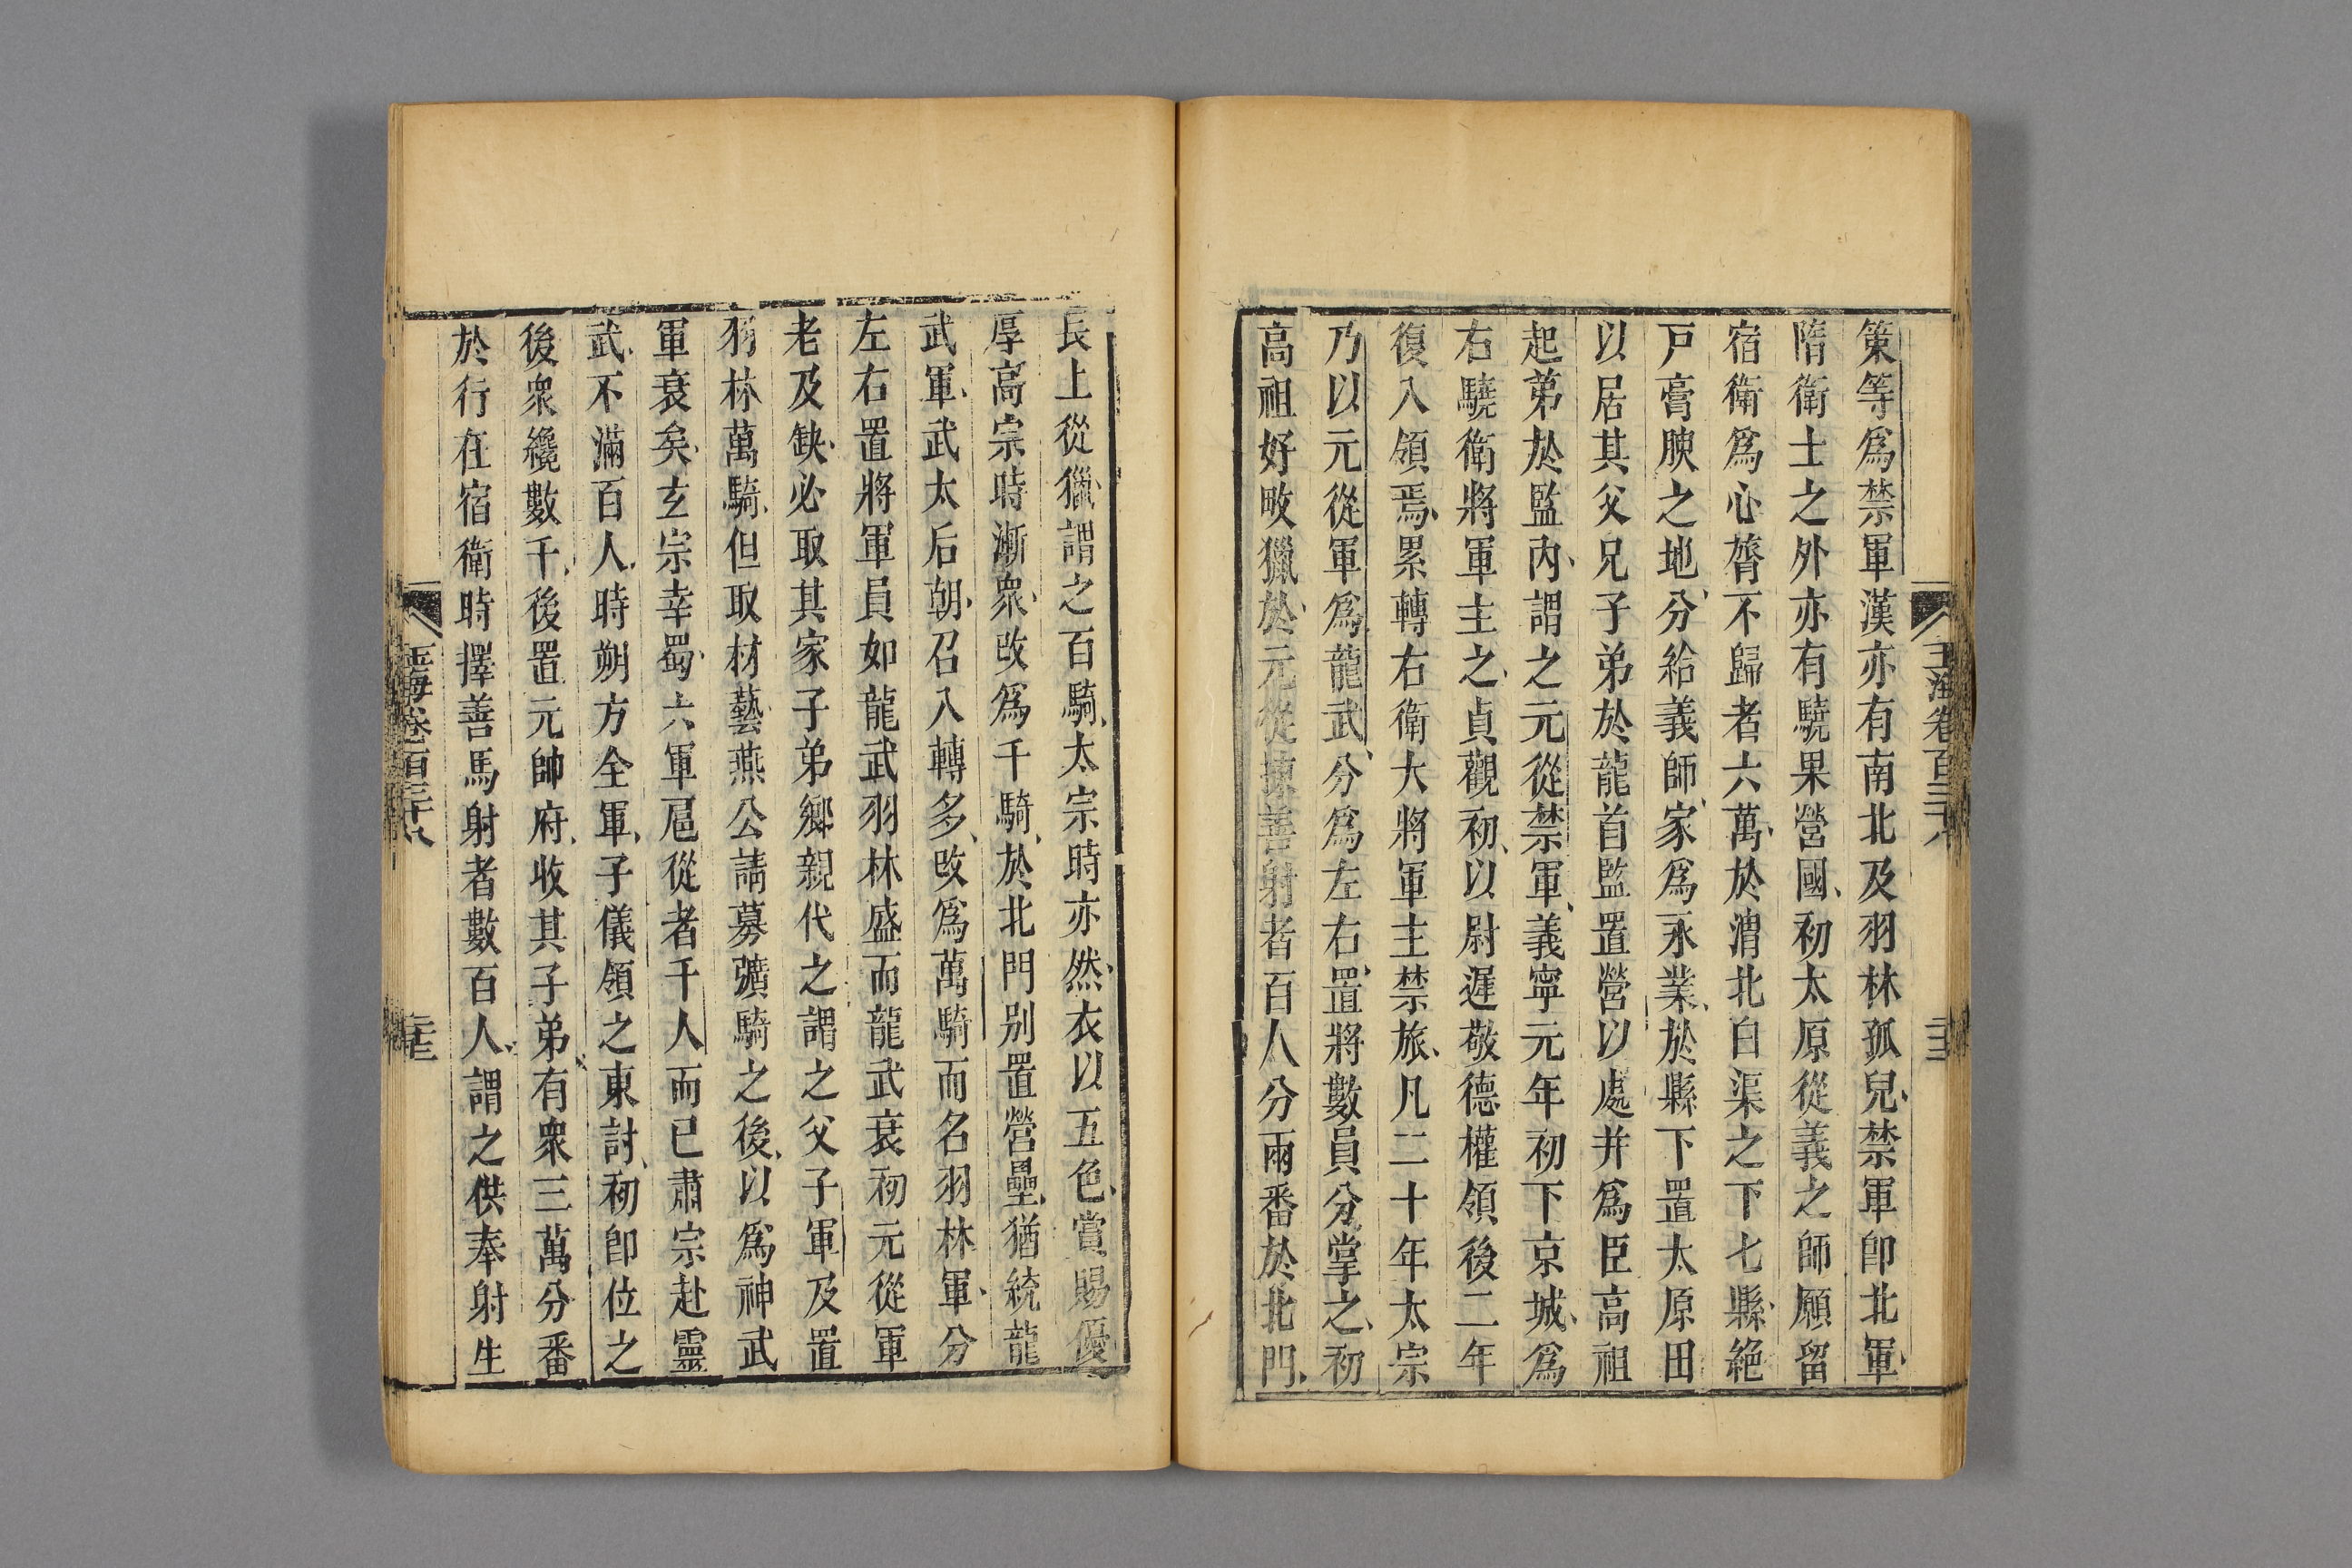 策等爲禁軍漢亦有南北及羽林孤兒禁軍卽北軍
隋衛士之外亦有驍果營國初太原從義之師願留
宿衛爲心膂不歸者六萬於渭北白渠之下七縣絶
戸膏腴之地分給義師家爲永業於縣下置太原田
以居其父兄子弟於龍首監置營以處并爲臣高祖
起第於監內謂之元從禁軍義寧元年初下京城爲
右驍衛將軍主之貞觀初以尉遲敬德權領後二年
復入領焉累轉右衛大將軍主禁旅凡二十年太宗
乃以元從軍爲龍武分爲左右置將數員分掌之初
高祖好畋獵於元從揀善射者百人分兩番於北門
玉海卷百三十八
長上從獵謂之百騎太宗時亦然衣以五色賞賜優
厚高宗時漸衆改爲千騎於北門別置營壘猶統龍
武軍武太后朝召入轉多改爲萬騎而名羽林軍分
左右置將軍員如龍武羽林盛而龍武衰初元從軍
老及缺必取其家子弟鄉親代之謂之父子軍及置
羽林萬騎但取材藝燕公請募彍騎之後以爲神武
軍衰矣玄宗幸蜀六軍扈從者千人而已肅宗赴靈
武不滿百人時朔方全軍子儀領之東討初卽位之
後衆纔數千後置元帥府收其子弟有衆三萬分番
於行在宿衛時擇善馬射者數百人謂之供奉射生
玉海卷百三十八